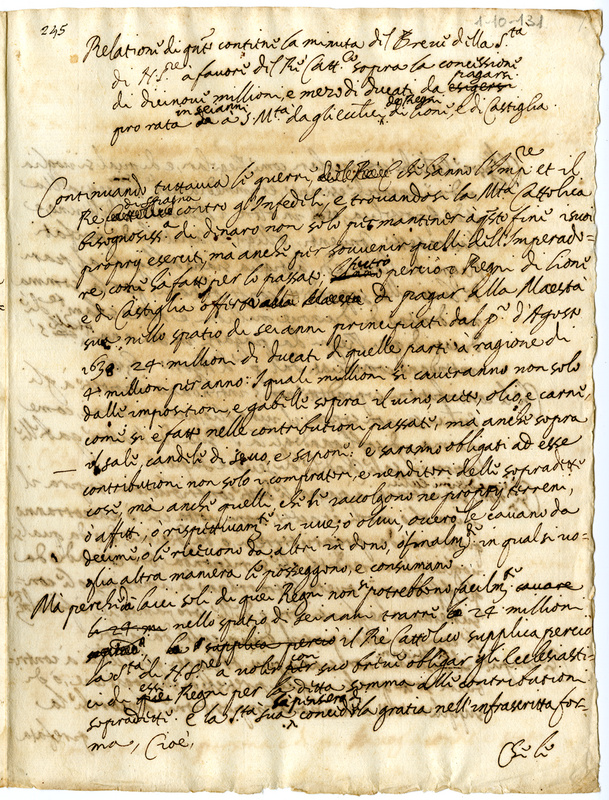 245
1-10-131
Relatione di q.to contiene la minuta del Breve della S.ta
di N. S.re a favore del Re Catt.co sopra la concessione
di dicinove millioni, e mezo di Ducati da esigersi pagarsi
pro rata in sei anni a S. M.ta dagli eccl.ci de Regni di Lione, e di Castiglia.
Continuando tuttavia le guerre che hanno l'Imp.re et il
Re Cattolico di Spagna contro gl'Infedeli, e trovandosi la M.tà Cattolica
bisognosiss.a di denaro non solo per mantener a q.sto fine i suoi
proprij eserciti, mà anche per souvenir quelli dell'Imperado-
re, come hà fatto per lo passato, perciò i Regni di Lione
e di Castiglia offersero di pagar alla Maestà
sua, nello spatio di sei anni principiati dal p.o d'Agosto
1638. 24 millioni di ducati di quelle parti a ragione di
4 millioni per anno: I quali millioni si caveranno non solo
dalle impositioni, e gabelle sopra il vino, aceto, olio, e carne,
come si è fatto nelle contributioni passate, mà anche sopra
il sale, candele di sevo, e sapone: e saranno obligati ad esse
contributioni non solo i compratori, e venditori delle sopradette
cose, mà anche quelli, che le raccolgono ne proprij terreni,
ò affitti, o rispettivam.te in uve, ò olive, overo le cavano da
decime, o le ricevono da altri in dono, ò finalm.te in qualsivo-
glia altra maniera le posseggono, e consumano.
Mà perche i laici soli di quei Regni non potrebbono facilm.te cavare
nello spatio di sei anni trarre 24 millioni
la supplica perciò il Re Cattolico supplica perciò
la S.tà di N. S.re a voler con suo breve obligar gli Ecclesiasti-
ci di essi Regni per la detta somma alle contributioni
sopradette. E la S.tà sua la pensero conceder la gratia nell'infrascritta for-
ma, Cioè,
Che le